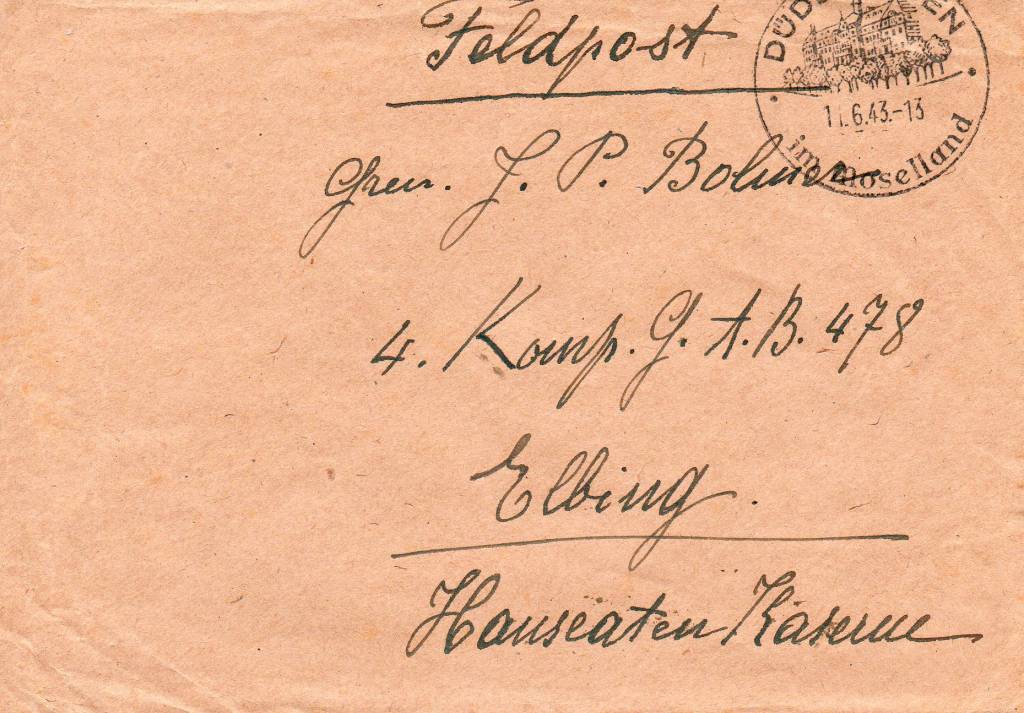 Feldpost
DÜD EN
11.6.43.-13
im Moselland
Gren. J. P. Bohner
4. Komp. G. A. B. 478
Elbing.
Hanseaten Kaserne